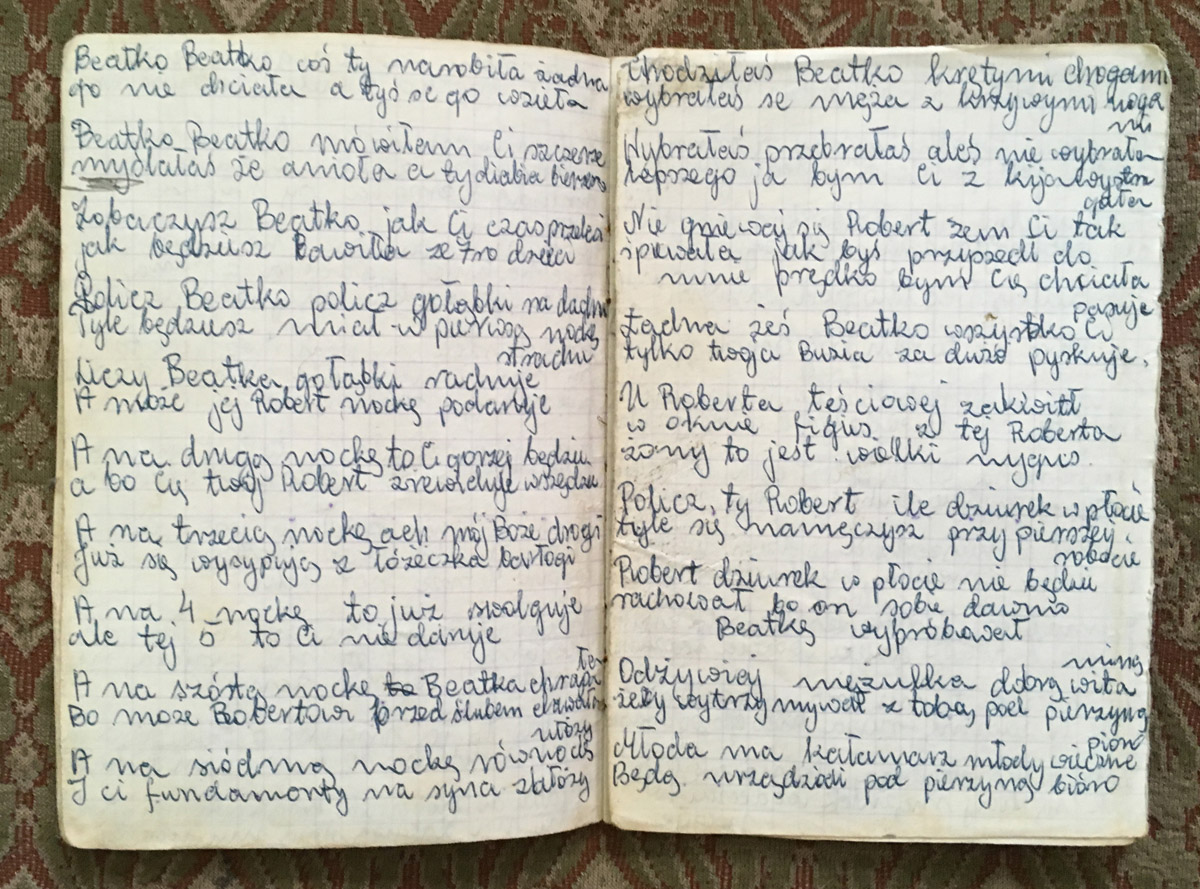 Beatko Beatko coś ty narobiła żadna
go nie chciała a tyś se go wzięła
Beatko Beatko mówiłam Ci szczerze
myślałaś że anioła a ty diabła bierzesz
Zobaczysz Beatko jak Ci czas przeleci
jak będziesz Bawiła ze 7ro dzieci
Policz Beatko policz gołąbki na dachu
Tyle będziesz miał w pierwszą nockę
strachu
Liczy Beatka gołąbki rachuje
A może jej Robert nockę podaruje
A na drugą nockę to Ci gorzej będzie
a bo Cię twój Robert zrewiduje wszędzie
A na trzecią nockę ach mój Boże drogi
Już się wysypią z łóżeczka barłogi
A na 4 nockę to już sfolguje
ale tej 5 to Ci nie daruje
A na szóstą nockę Beatka chrapa
Bo może Robertowi przed ślubem
ułoży
A na siódmą nockę równo
I ci fundamenty na syna założy
Chodziłaś Beatko krętymi drogami
wybrałaś se męża z krzywymi noga
mi
Wybrałaś przebrałaś aleś nie wybrała
lepszego ja bym Ci z kija wystru
gała
Nie gniewaj się Robert żem Ci tak
śpiewała jak byś przyszedł do
mnie prędko bym Cię chciała
Ładna żeś Beatko wszystko Ci
pasuje
tylko twoja Buzia za dużo pyskuje.
U Roberta teściowej zakwitł
w oknie figus z tej Roberta
żony to jest wielki nygus
Policz ty Robert ile dziurek w płocie
tyle się namęczysz przy pierszej
robocie
Robert dziurek w płocie nie będzie
rachował bo on sobie dawno
Beatkę wypróbował
Odżywiaj mężulka dobrą wita
miną
żeby wytrzymywał z tobą pod pierzyną
Młoda ma kałamarz młody wieczne
pióro
Będą urządzali pod pierzyną bióro